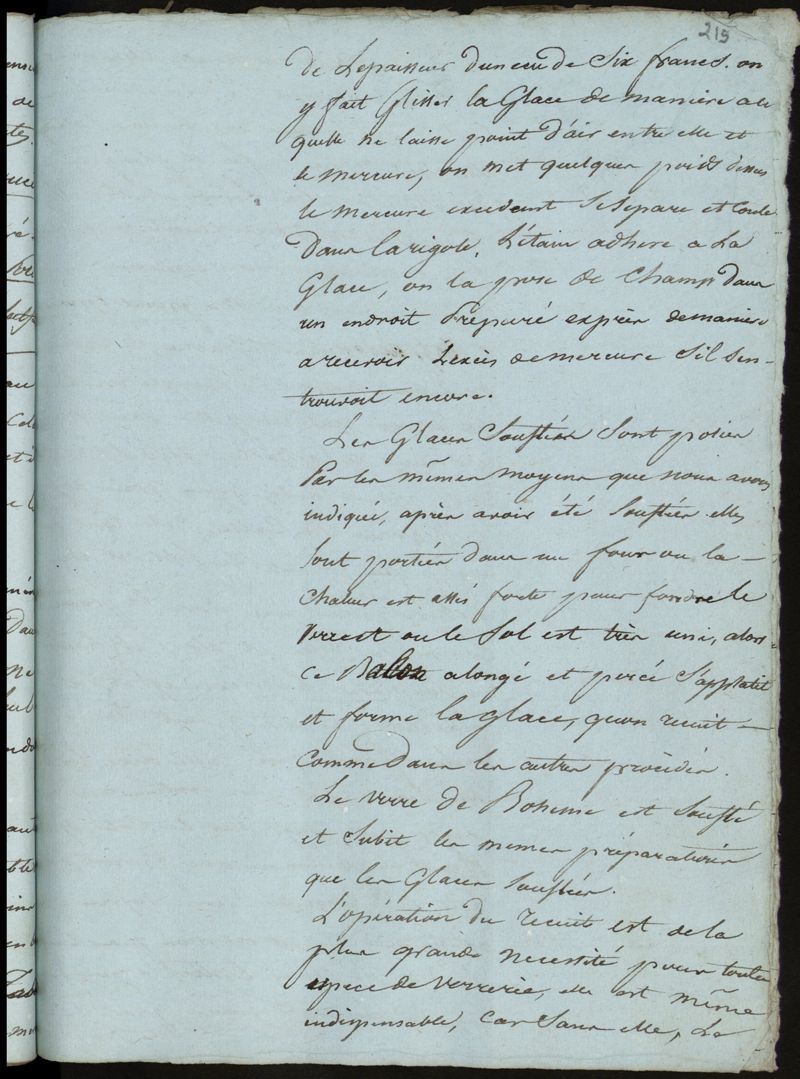 219
de Lepaisseur dun ecu de Six francs. on
y fait Glisser la Glace de maniere a ce
quelle ne laisse point d'air entre elle et
le mercure, on met quelques poids dessus
le mercure excedent Se separe et Coule
Dans la rigole. L'étain adhere a La
Glace, on la pose de Champ dans
un endroit Préparé exprès de maniere
a recevoir L'excès de mercure S'il Sen-
trouvoit encore.
Les Glaces Soufflées Sont polies
Par les mêmes moyens que nous avons
indiqué, après avoir été Soufflées elles
Sont portées dans un four ou la
Chaleur est assés forte pour fondre le
Verre et ou le Sol est très uni, alors
Ce Balon alongé et percé S'applatit
et forme la glace, quon recuit
Comme Dans les autres procédés.
Le verre de Boheme est Soufflé
et Subit les memes préparations
que les Glaces Soufflées.
L'opération du recuit est de la
plus grande necessité pour toute
espece de verrerie, elle est même
indispensable, Car Sans elle, Le